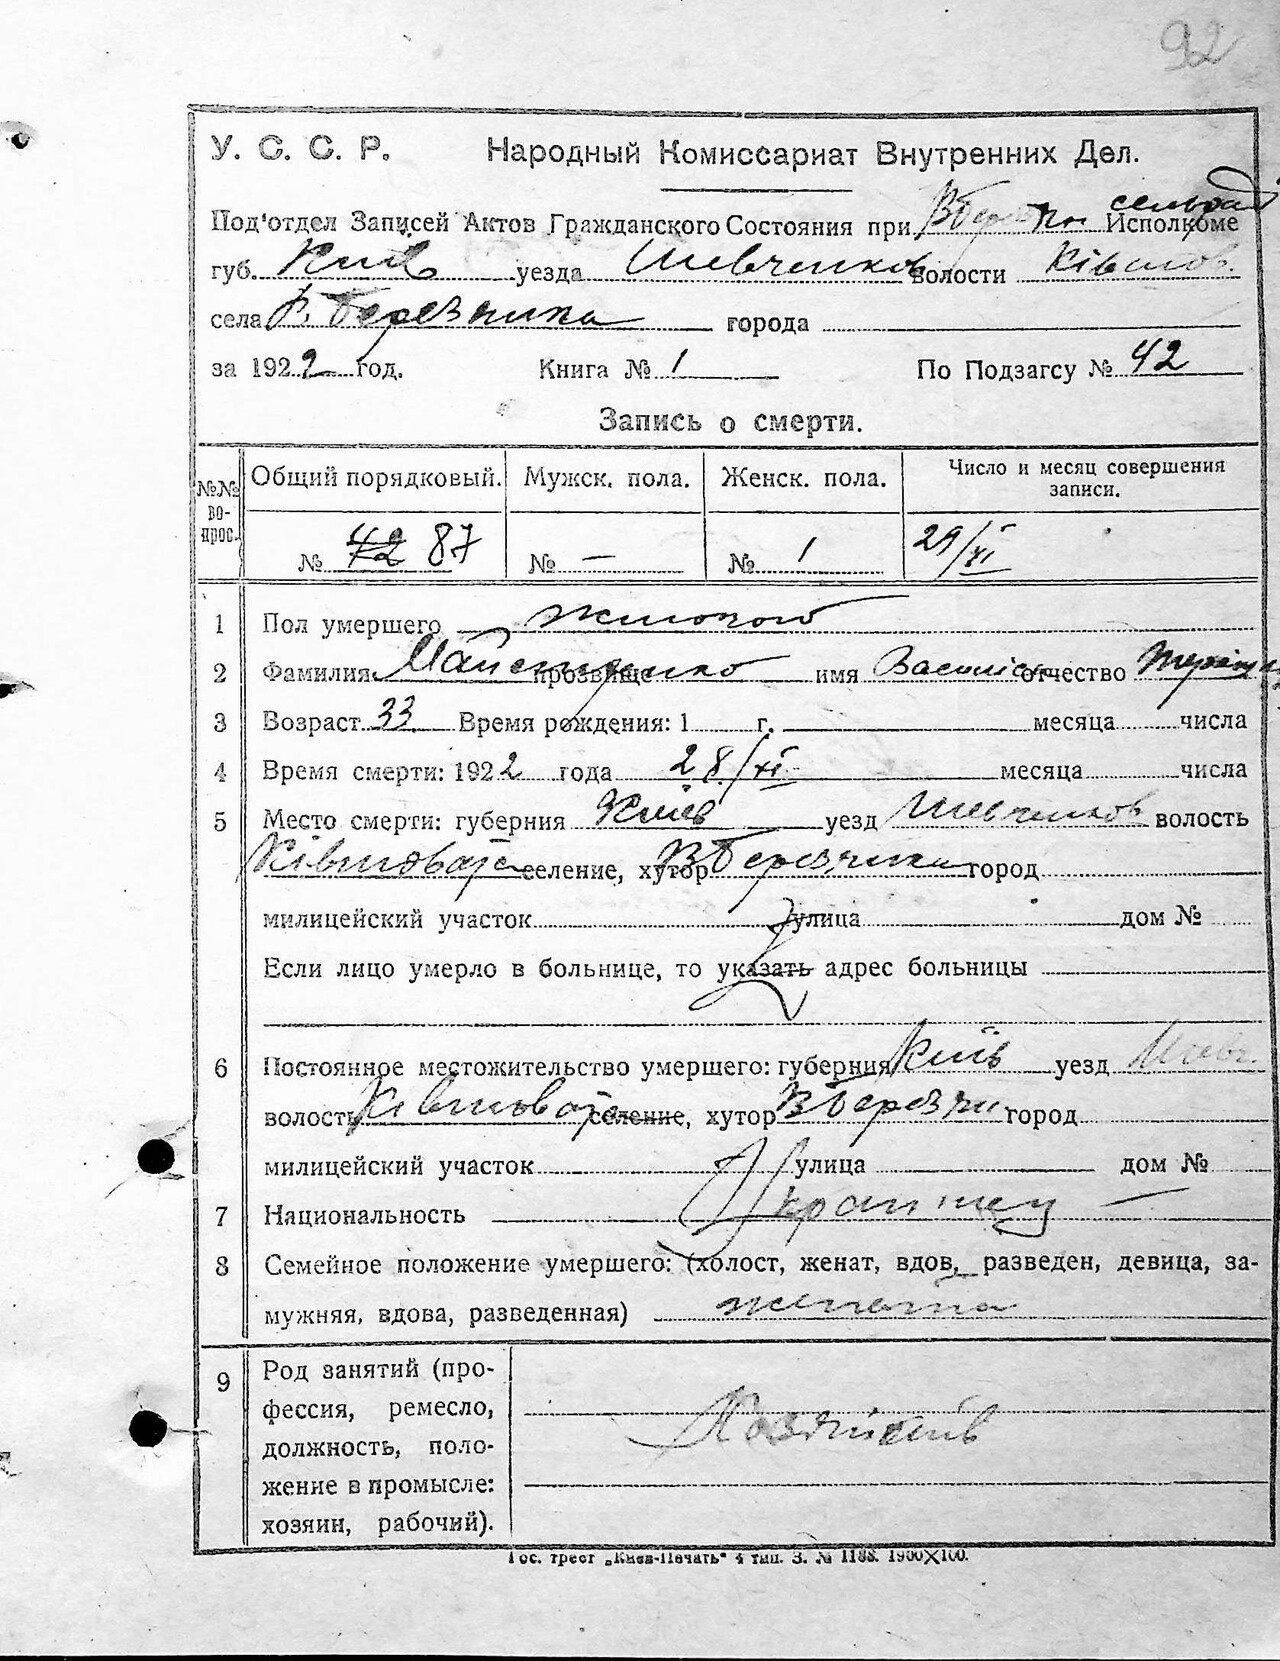 92
У. С. С. Р. Народный Комиссариат Внутренних Дел.
Под'отдел Записей Актов Гражданского Состояния при Исполкоме
губ. Київ уезда Шевченков волости
села В. Березянка города
за 1922 год. Книга № 1 По Подзагсу № 42
Запись о смерти.
№№ вопрос. Общий порядковый. Мужск. пола. Женск. пола. Число и месяц совершения записи.
№ 42 87 № — № 1 29/XI
1 Пол умершего
2 Фамилия прозвище имя отчество
3 Возраст 33 Время рождения: 1 г. месяца числа
4 Время смерти: 1922 года 28/XI месяца числа
5 Место смерти: губерния Київ уезд Шевченков волость
селение, хутор город
милицейский участок улица дом №
Если лицо умерло в больнице, то указать адрес больницы
6 Постоянное местожительство умершего: губерния Київ уезд
волость селение, хутор город
милицейский участок улица дом №
7 Национальность
8 Семейное положение умершего: (холост, женат, вдов, разведен, девица, за-
мужняя, вдова, разведенная)
9 Род занятий (про-
фессия, ремесло,
должность, поло-
жение в промысле:
хозяин, рабочий).
Гос. трест „Киев-Печать“ 4 тип. З. № 1188. 1900X100.